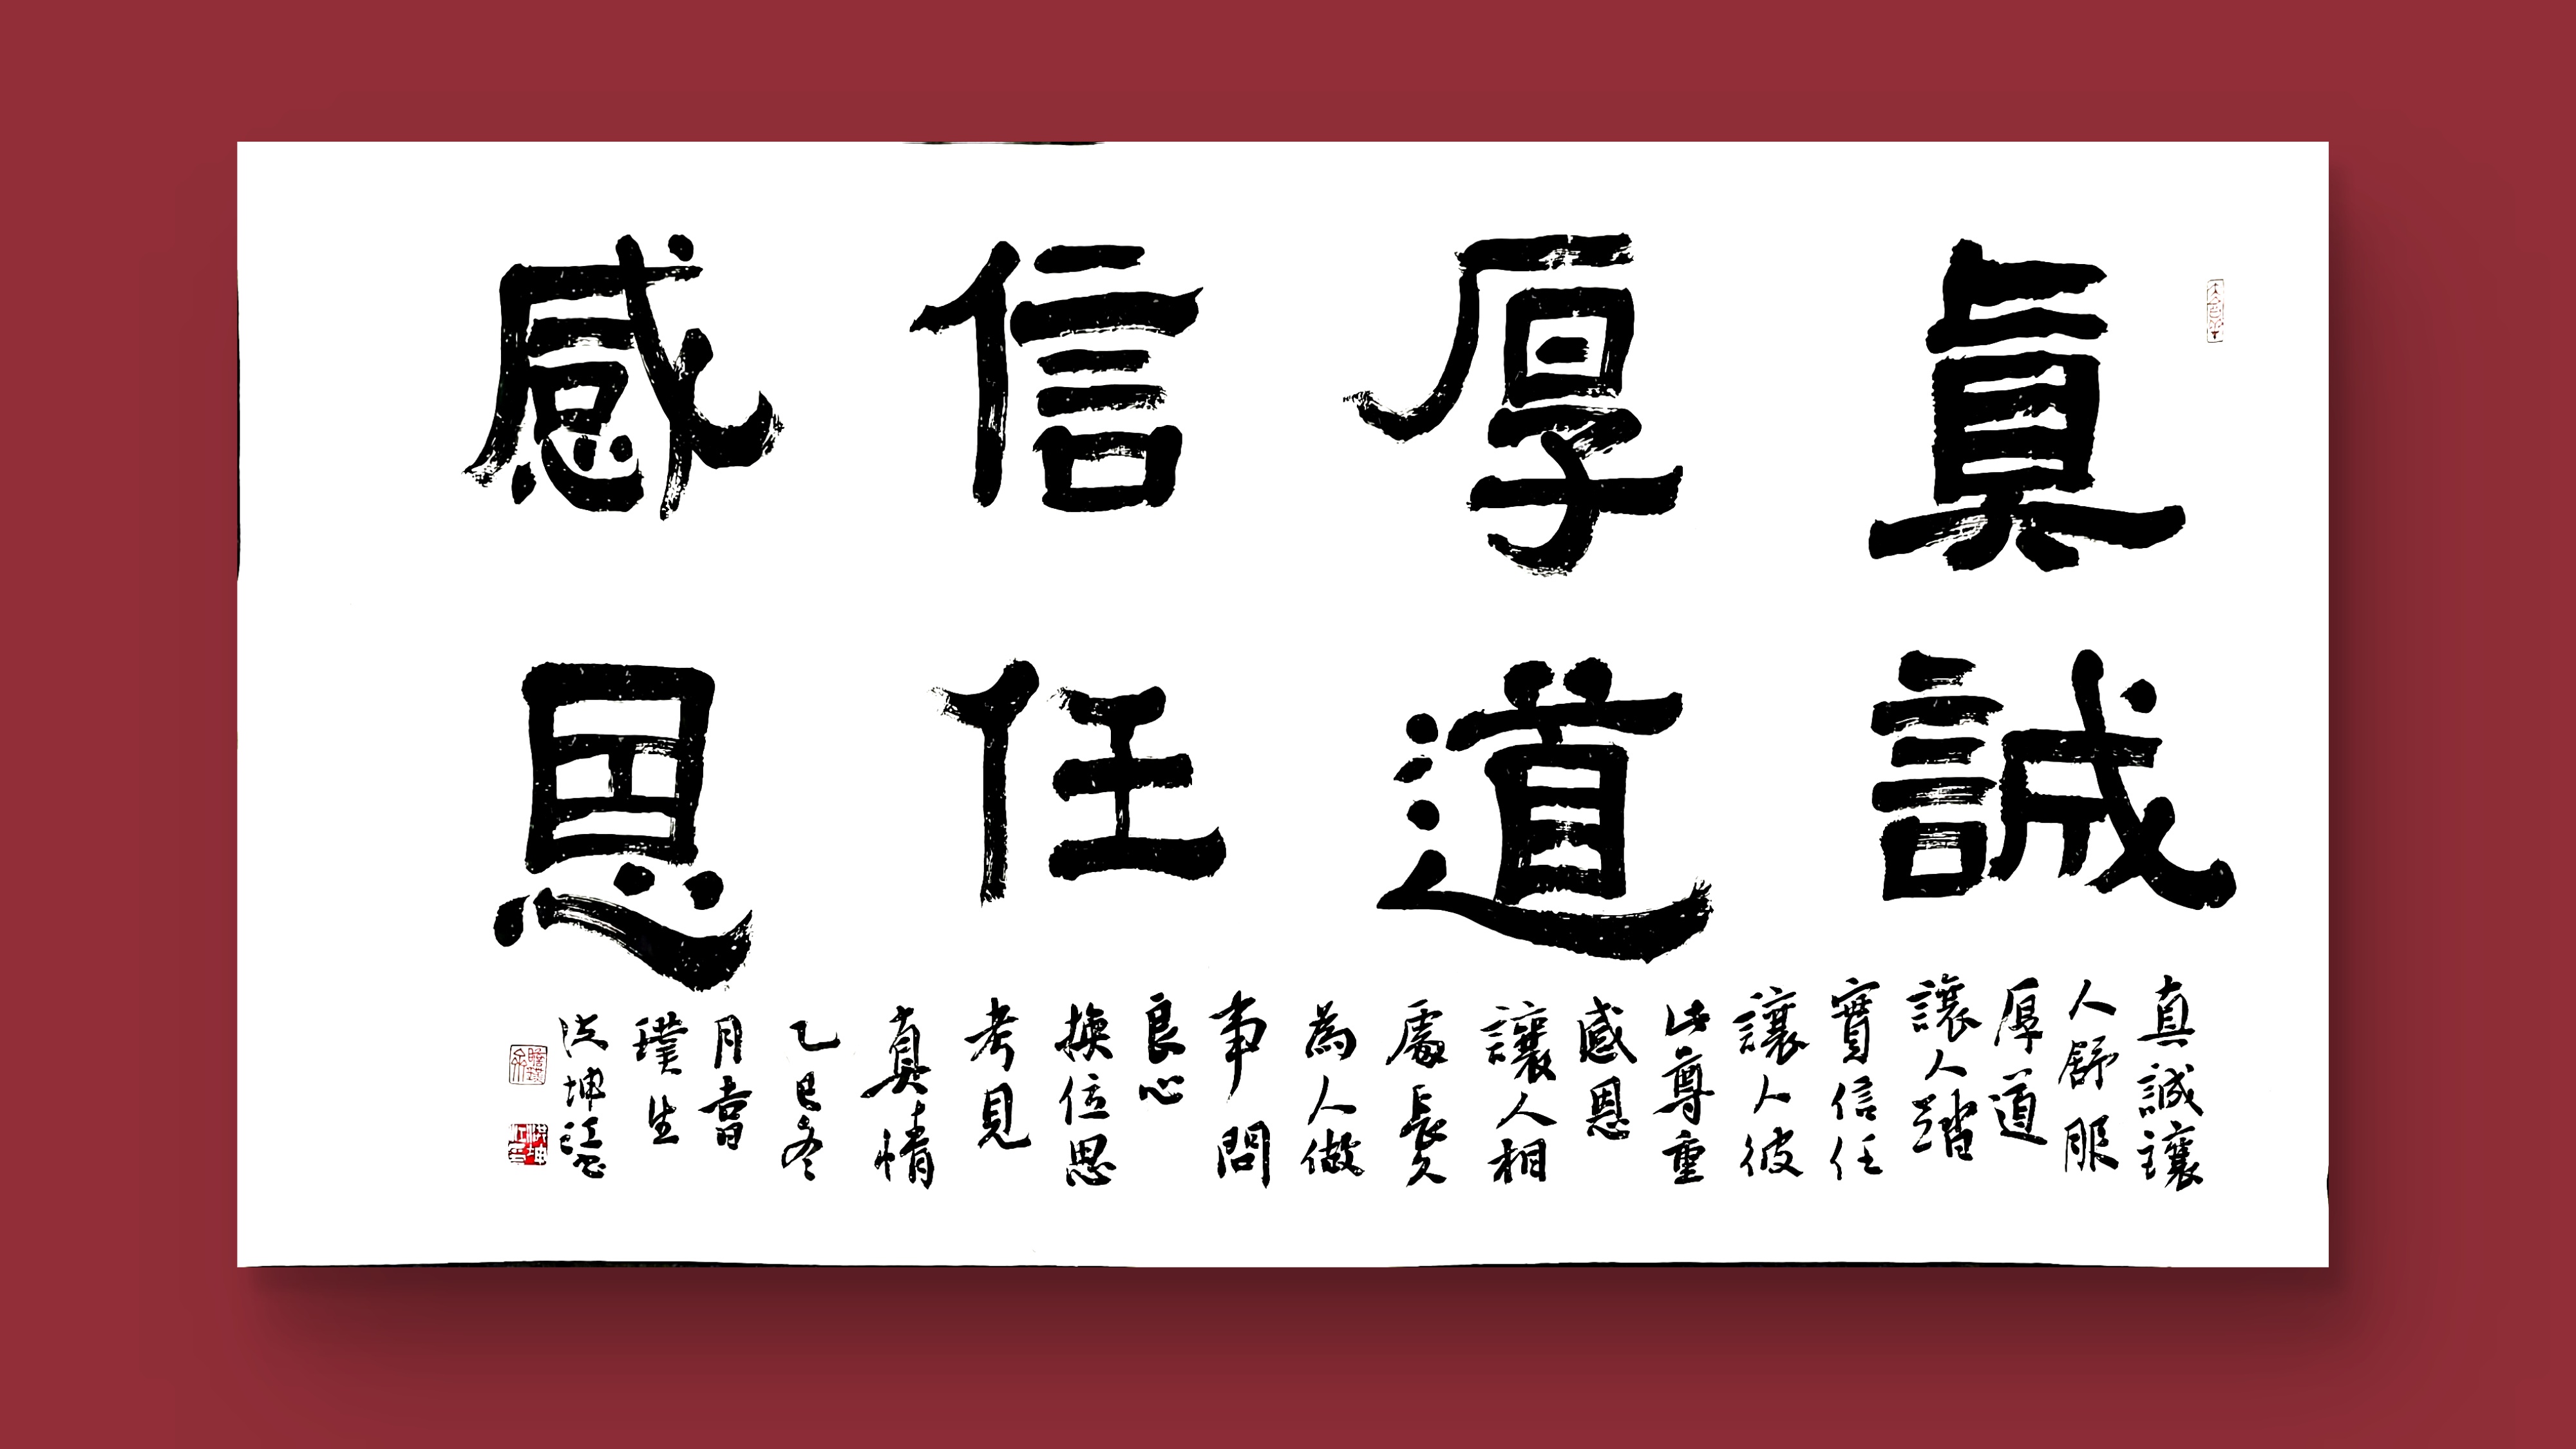 眞誠
厚道
信任
感恩
真誠讓
人舒服
厚道
讓人踏
實信任
讓人彼
此尊重
感恩
讓人相
處長久
為人做
事問
良心
換位思
考見
真情
乙巳冬
月
璞生
洪坤江